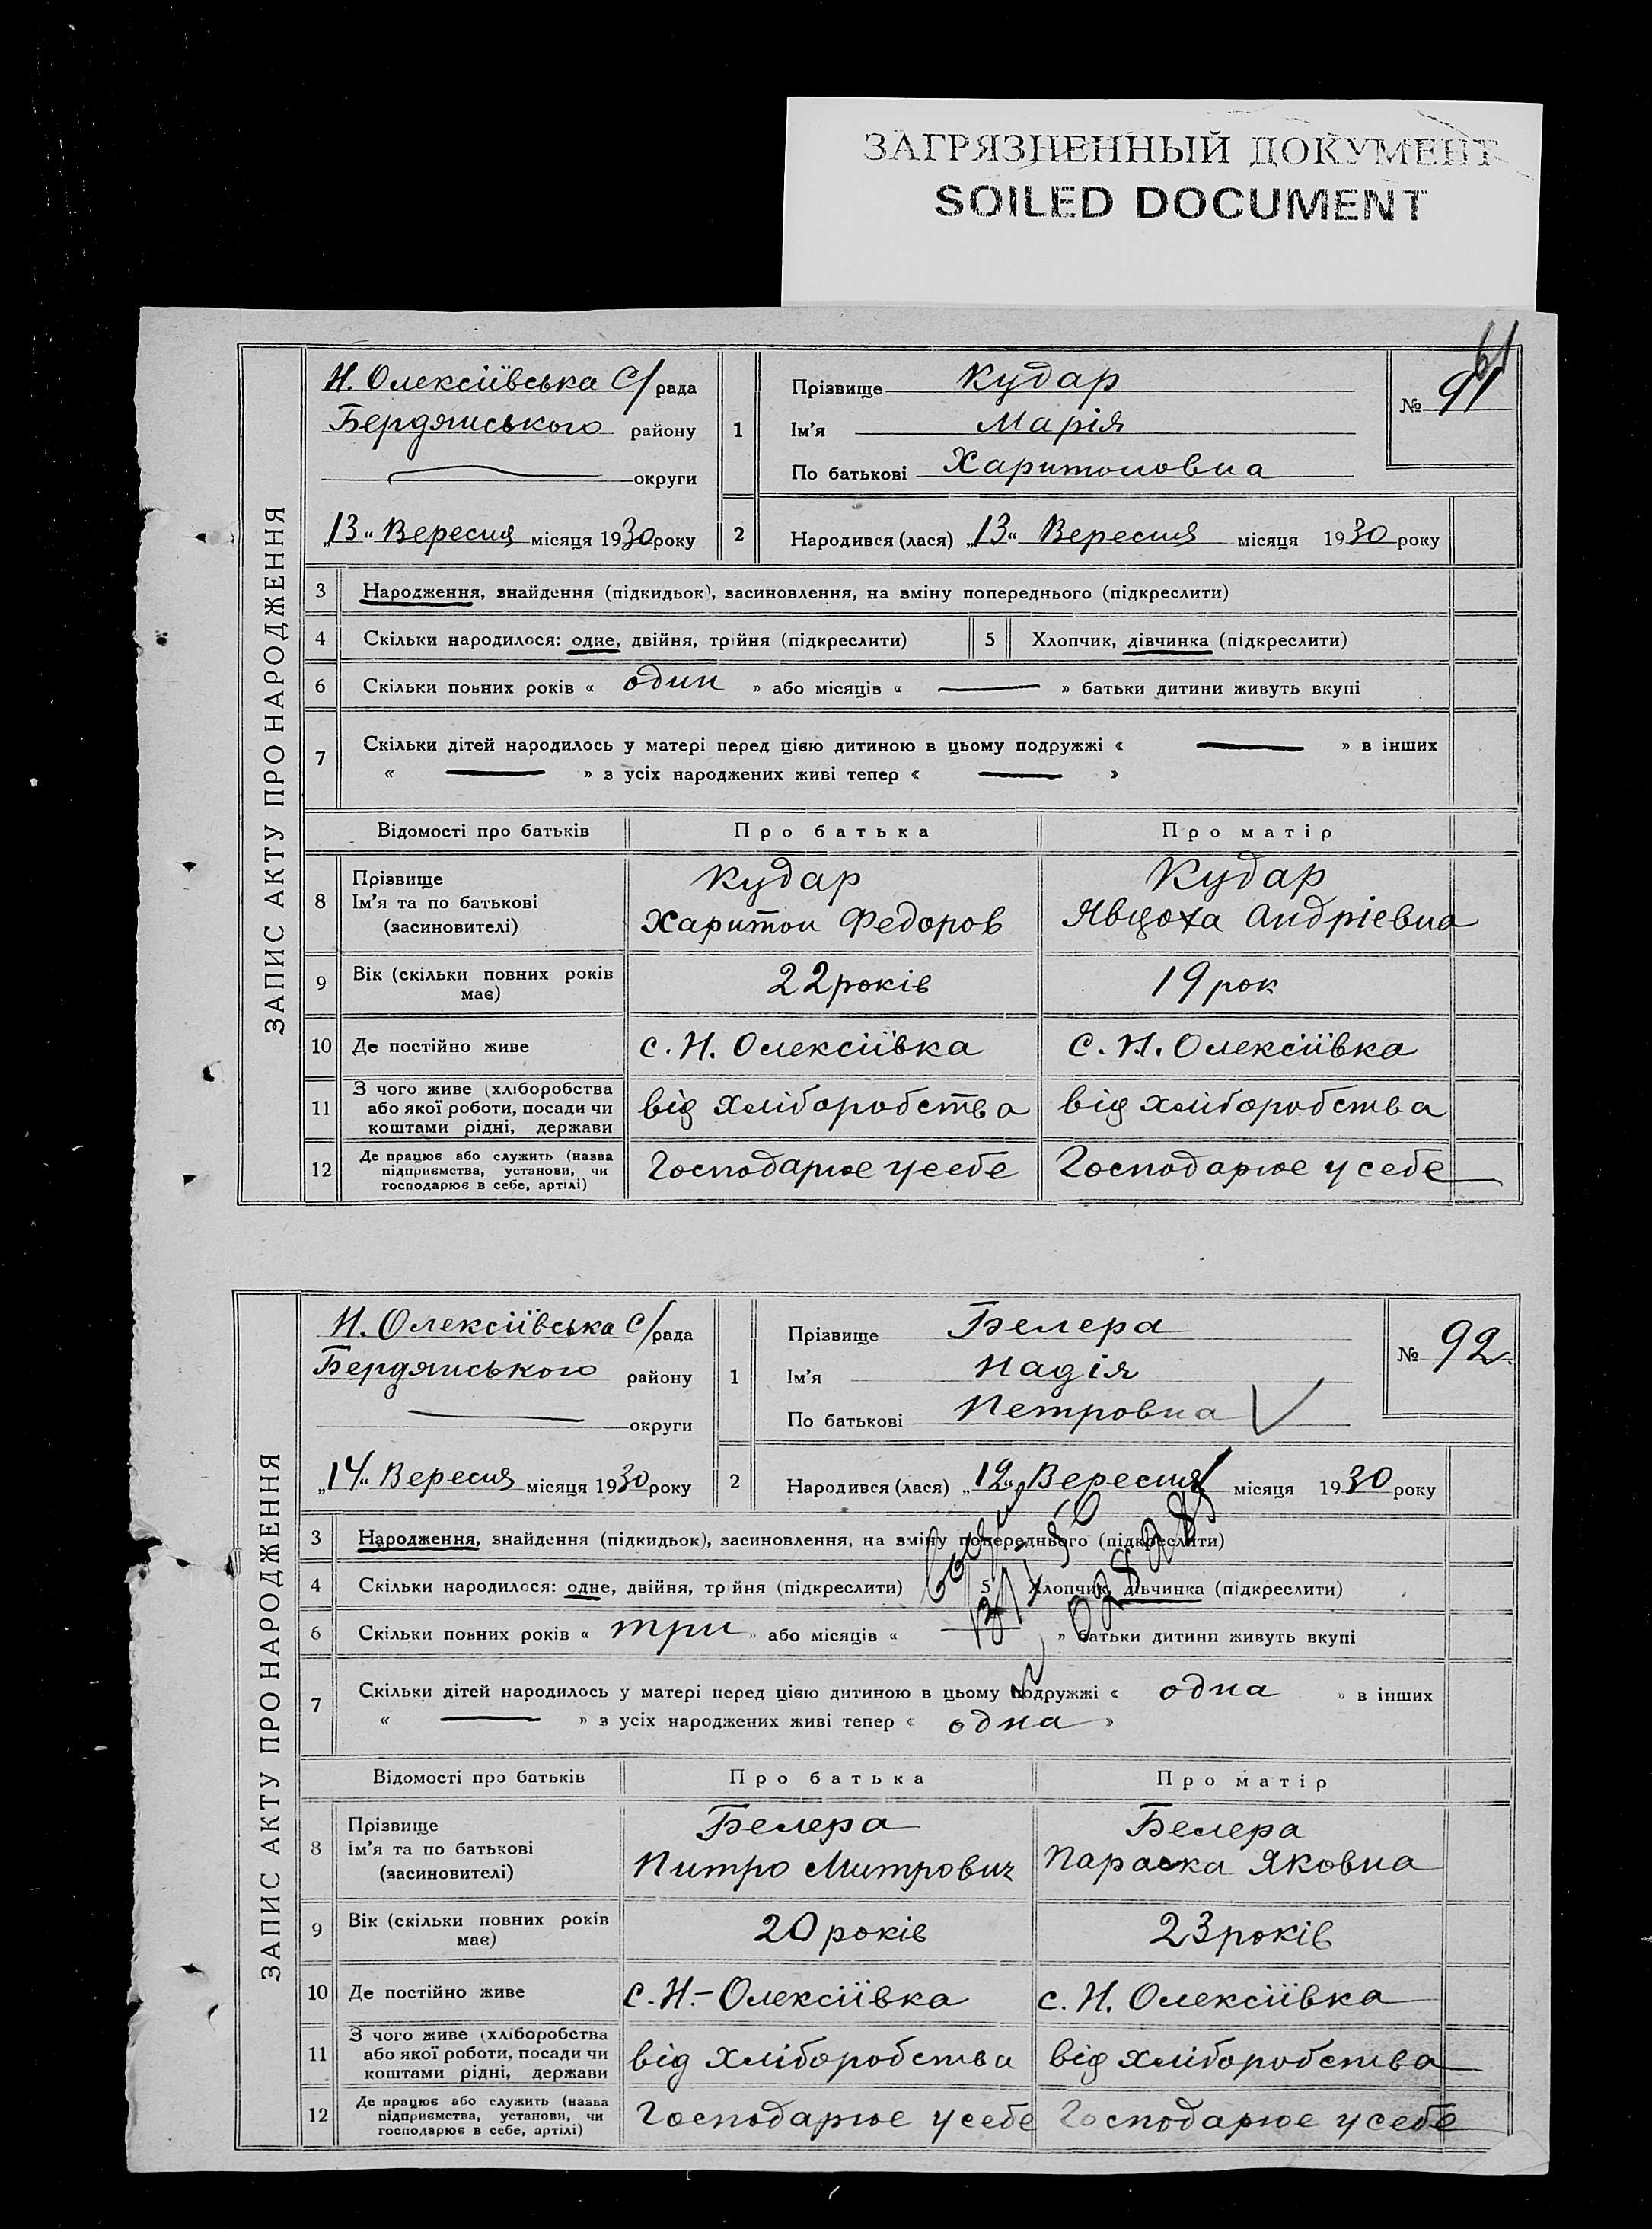 ЗАГРЯЗНЕННЫЙ ДОКУМЕНТ
SOILED DOCUMENT
61
ЗАПИС АКТУ ПРО НАРОДЖЕННЯ
Н. Олексіївська С/рада
Бердянського району
округи
„13“ Вересня місяця 1930 року
1 Прізвище Кудар
Ім'я Марія
По батькові Харитоновна
№ 91
2 Народився (лася) „13“ Вересня місяця 1930 року
3 Народження, знайдення (підкидьок), засиновлення, на зміну попереднього (підкреслити)
4 Скільки народилося: одне, двійня, трійня (підкреслити) 5 Хлопчик, дівчинка (підкреслити)
6 Скільки повних років « один » або місяців « — » батьки дитини живуть вкупі
7 Скільки дітей народилось у матері перед цією дитиною в цьому подружжі « — » в інших
« — » з усіх народжених живі тепер « — »
Відомості про батьків Про батька Про матір
8 Прізвище Ім'я та по батькові (засиновителі)
Кудар Харитон Федоров
Кудар Явдоха Андріевна
9 Вік (скільки повних років має) 22 років 19 рок
10 Де постійно живе с. Н. Олексіївка с. Н. Олексіївка
11 З чого живе (хліборобства
або якої роботи, посади чи
коштами рідні, держави
від хліборобства від хліборобства
12 Де працює або служить (назва
підприємства, установи, чи
господарює в себе, артілі)
Господарює у себе Господарює у себе
ЗАПИС АКТУ ПРО НАРОДЖЕННЯ
Н. Олексіївська С/рада
Бердянського району
округи
„14“ Вересня місяця 1930 року
1 Прізвище Белера
Ім'я Надія
По батькові Петровна
№ 92
2 Народився (лася) „12“ Вересня місяця 1930 року
3 Народження, знайдення (підкидьок), засиновлення, на зміну попереднього (підкреслити)
4 Скільки народилося: одне, двійня, трійня (підкреслити) 5 Хлопчик, дівчинка (підкреслити)
6 Скільки повних років « три » або місяців « — » батьки дитини живуть вкупі
7 Скільки дітей народилось у матері перед цією дитиною в цьому подружжі « одна » в інших
« — » з усіх народжених живі тепер « одна »
Відомості про батьків Про батька Про матір
8 Прізвище Ім'я та по батькові (засиновителі)
Белера Питро Митрович
Белера Параска Яковна
9 Вік (скільки повних років має) 20 років 23 років
10 Де постійно живе с. Н.- Олексіївка с. Н. Олексіївка
11 З чого живе (хліборобства
або якої роботи, посади чи
коштами рідні, держави
від хліборобства від хліборобства
12 Де працює або служить (назва
підприємства, установи, чи
господарює в себе, артілі)
Господарює у себе Господарює у себе